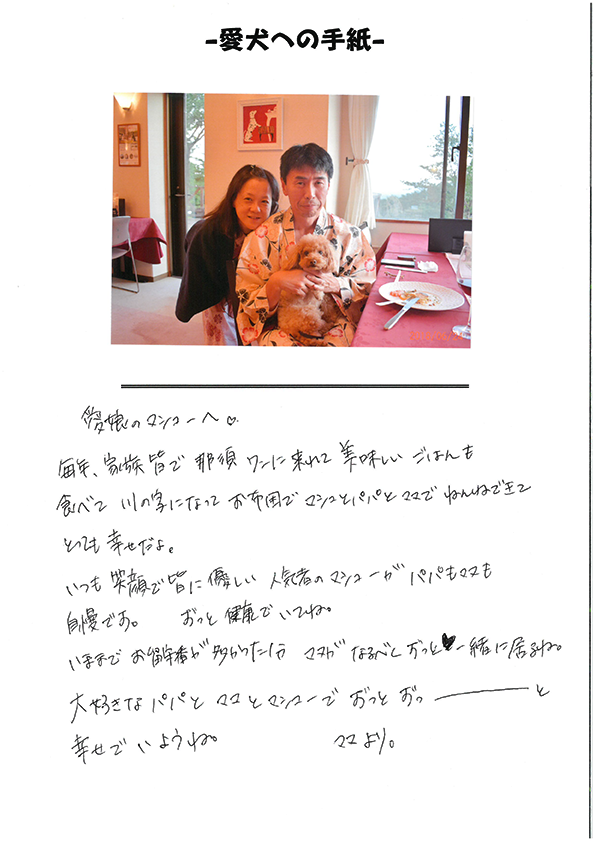 -愛犬への手紙-
愛娘のマシューへ♡
毎年、家族皆で 那須 ワンに来れて 美味しい ごはんも
食べて 川の字になって お布団で マシューとパパとママで ねんねできて
とっても 幸せだよ。
いつも 笑顔で皆に 優しい 人気者のマシューが パパもママも
自慢です。 ずっと 健康で いてね。
いままで お留守番が 多かった分 ママが なるべく ずっと♥一緒に居るね。
大好きな パパと ママ と マシューで ずっと ずっ――――と
幸せで いようね。 ママ より。